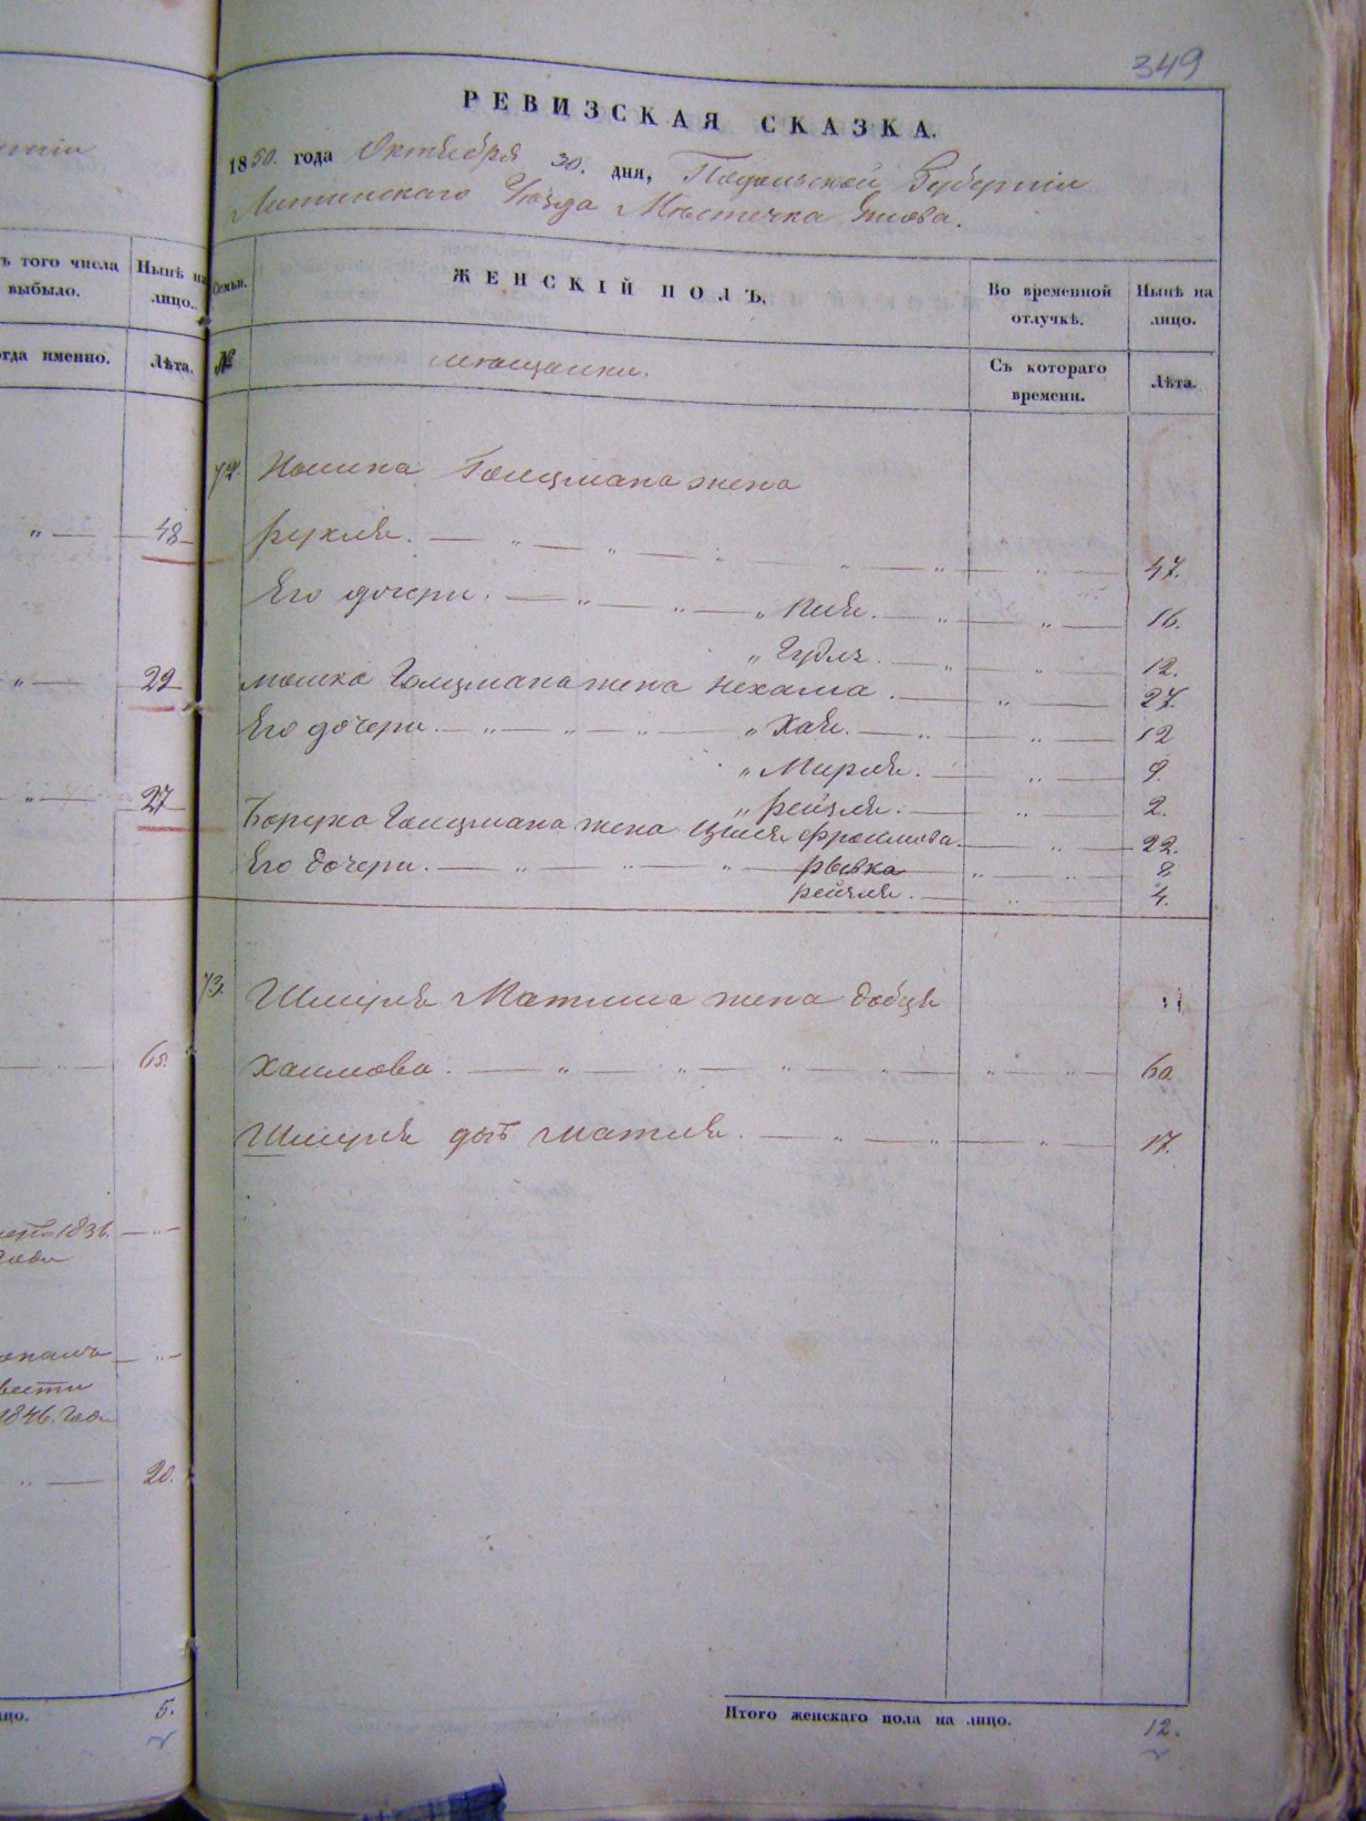 349
РЕВИЗСКАЯ СКАЗКА.
1850. года Октября 30. дня, Подольской Губерніи
Литинскаго Уѣзда Мѣстечка Янова.
ъ того числа
выбыло.
Нынѣ на
лицо.
Семьи.
ЖЕНСКІЙ ПОЛЪ.
Во временной
отлучкѣ.
Нынѣ на
лицо.
огда именно.
Лѣта.
№
мѣщанки.
Съ котораго
времени.
Лѣта.
72. Голцмана жена
" — 48
Рухля. — " — " — " — 47.
Его дочери. — " — " — " — " — 16.
" — " — 12.
" — 29
Мошка Голцмана жена Нехама. — " — 27.
Его дочери. — " — " — " — " Хая. — " — " — 12
" Мирля. — " — 9.
" — 27
" Рейзля. — " — 2.
Боруха Голцмана жена Фроимова. — " — 22.
Его дочери. — " — " — " — Рывка — " — " — 8
Рейзля. — " — 4.
73. Шмуля жена Добця
" — 65.
Хаимова. — " — " — " — " — " — " — 60.
Шмуля доч Матля. — " — " — " — 17.
1836.
года
1846. года
" — 20.
ицо. 5.
Итого женскаго пола на лицо. 12.